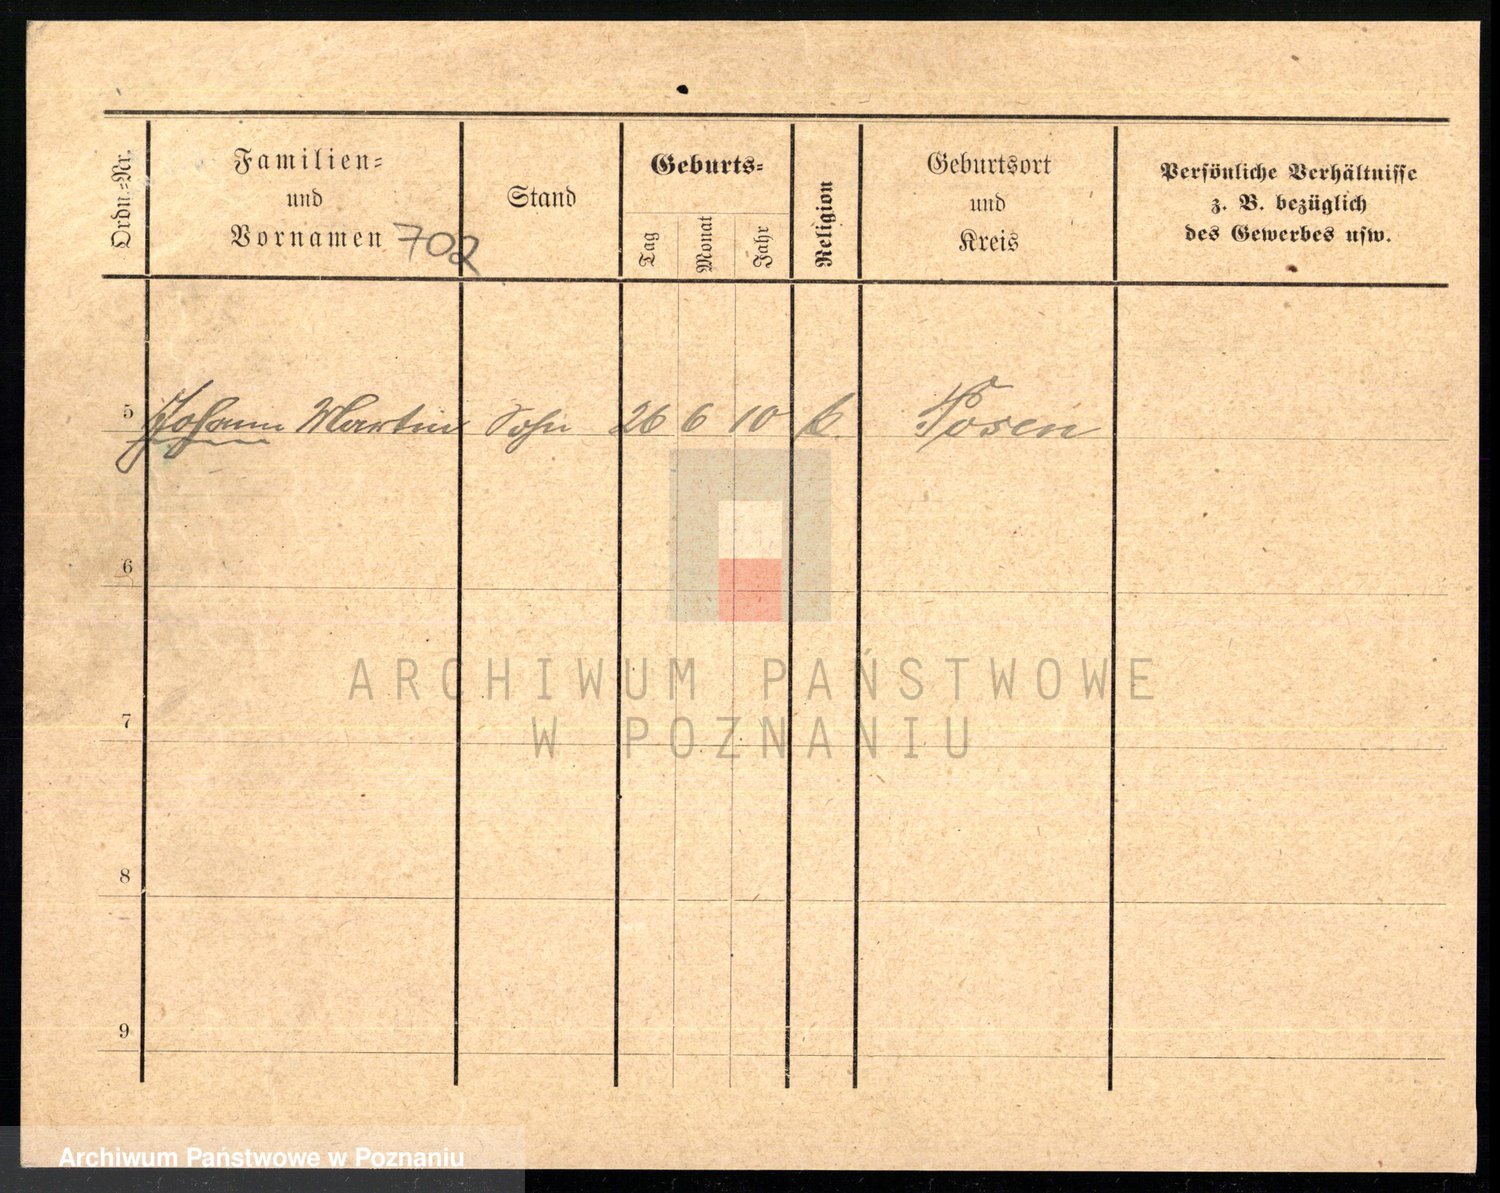 Ordn.=Nr.
Familien=
und
Vornamen
702
Stand
Geburts=
Tag
Monat
Jahr
Religion
Geburtsort
und
Kreis
Persönliche Verhältnisse
z. B. bezüglich
des Gewerbes usw.
5 Johann Martin Sohn 26 6 10 k. Posen
6
7
8
9
ARCHIWUM PAŃSTWOWE
W POZNANIU
Archiwum Państwowe w Poznaniu